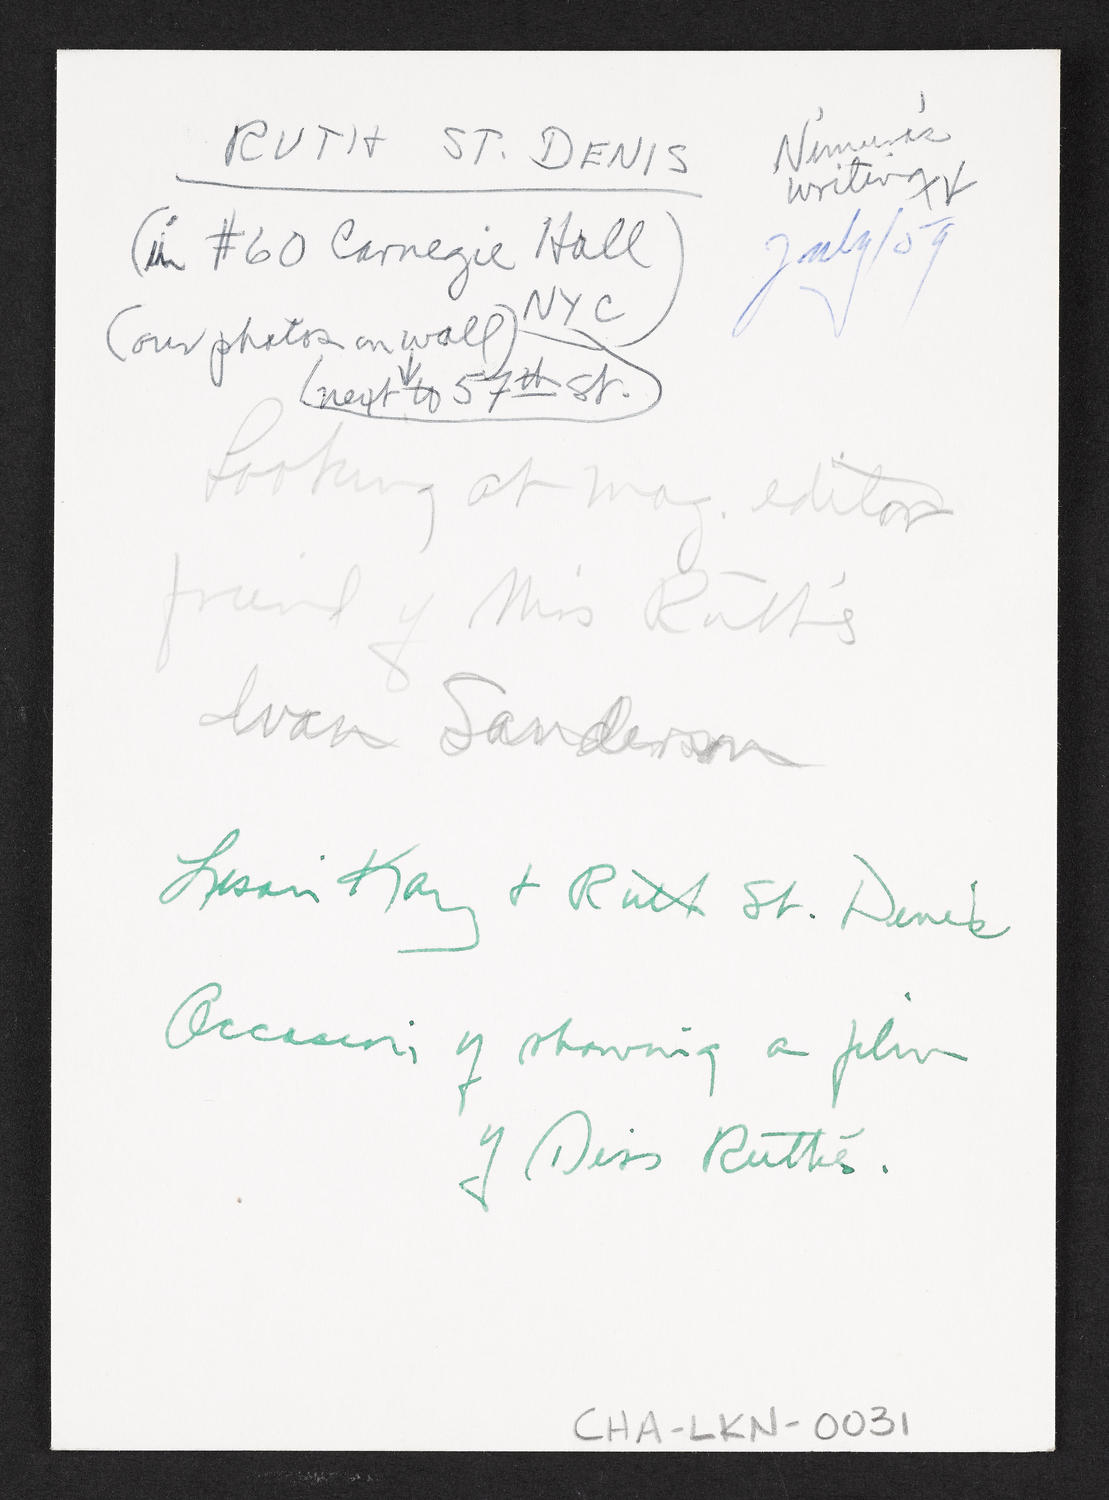 RUTH ST. DENIS
Nimura's
writing ↓
July/59
(in #60 Carnegie Hall)
NYC
(our photos on wall)
(next to 57th St.)
Looking at mag. editor
friend of Miss Ruth's
Ivan Sanderson
Lisan Kay + Ruth St. Denis
Occasion of showing a film
of Miss Ruth's.
CHA-LKN-0031